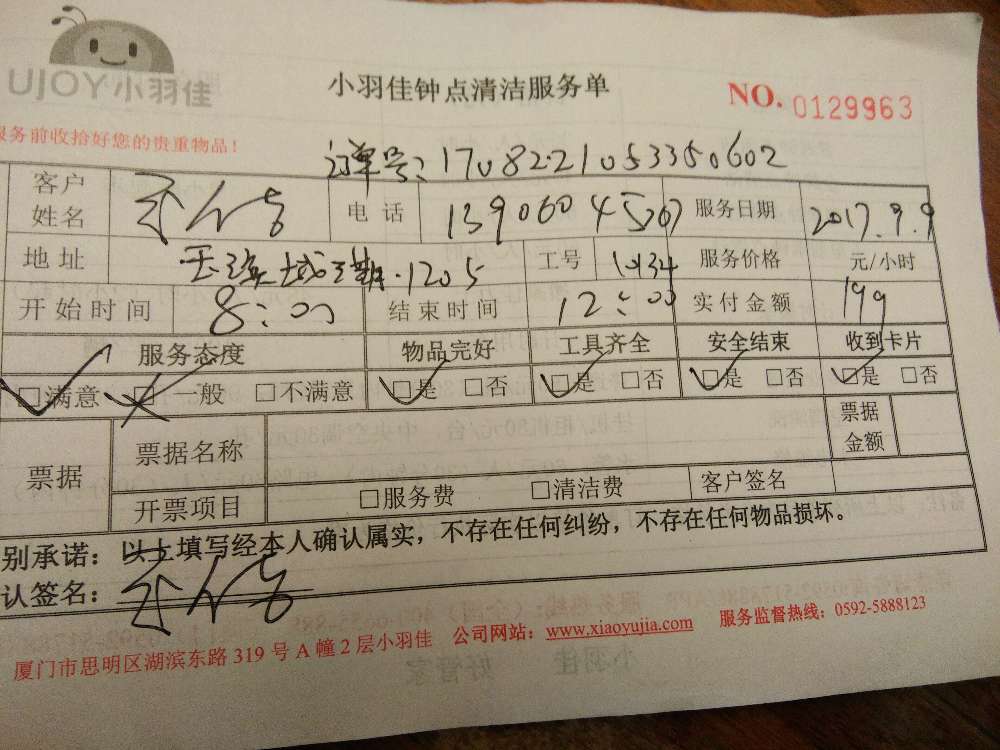 UJOY小羽佳
小羽佳钟点清洁服务单
NO. 0129963
服务前收拾好您的贵重物品!
订单号: 1708221053350602
客户姓名 电话 服务日期 2017.9.9
地址 1205 工号 服务价格 元/小时
开始时间 8:00 结束时间 12:00 实付金额 199
服务态度 物品完好 工具齐全 安全结束 收到卡片
□满意 □一般 □不满意 □是 □否 □是 □否 □是 □否 □是 □否
票据 票据名称 票据金额
开票项目 □服务费 □清洁费 客户签名
别承诺: 以上填写经本人确认属实，不存在任何纠纷，不存在任何物品损坏。
认签名:
厦门市思明区湖滨东路 319 号 A 幢 2 层小羽佳 公司网站: www.xiaoyujia.com 服务监督热线: 0592-5888123